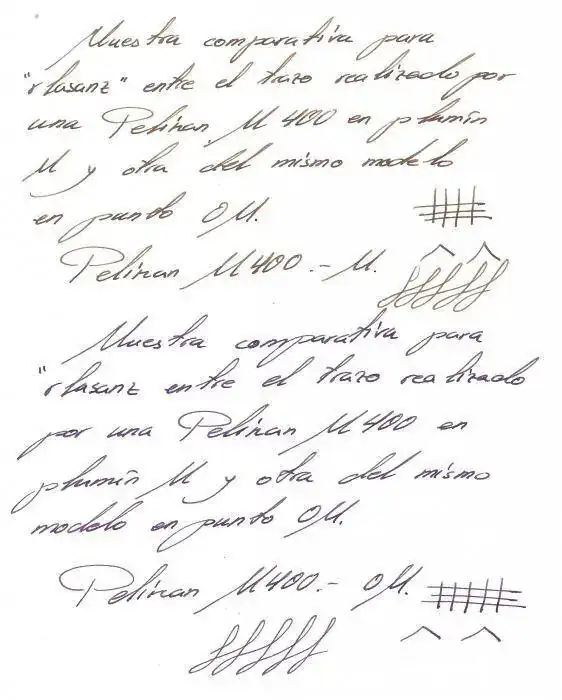 Muestra comparativa para
"rlasanz" entre el trazo realizado por
una Pelikan M 400 en plumín
M y otra del mismo modelo
en punto OM.
Pelikan M400.- M.
Muestra comparativa para
"rlasanz entre el trazo realizado
por una Pelikan M400 en
plumín M y otra del mismo
modelo en punto OM.
Pelikan M400.- OM.